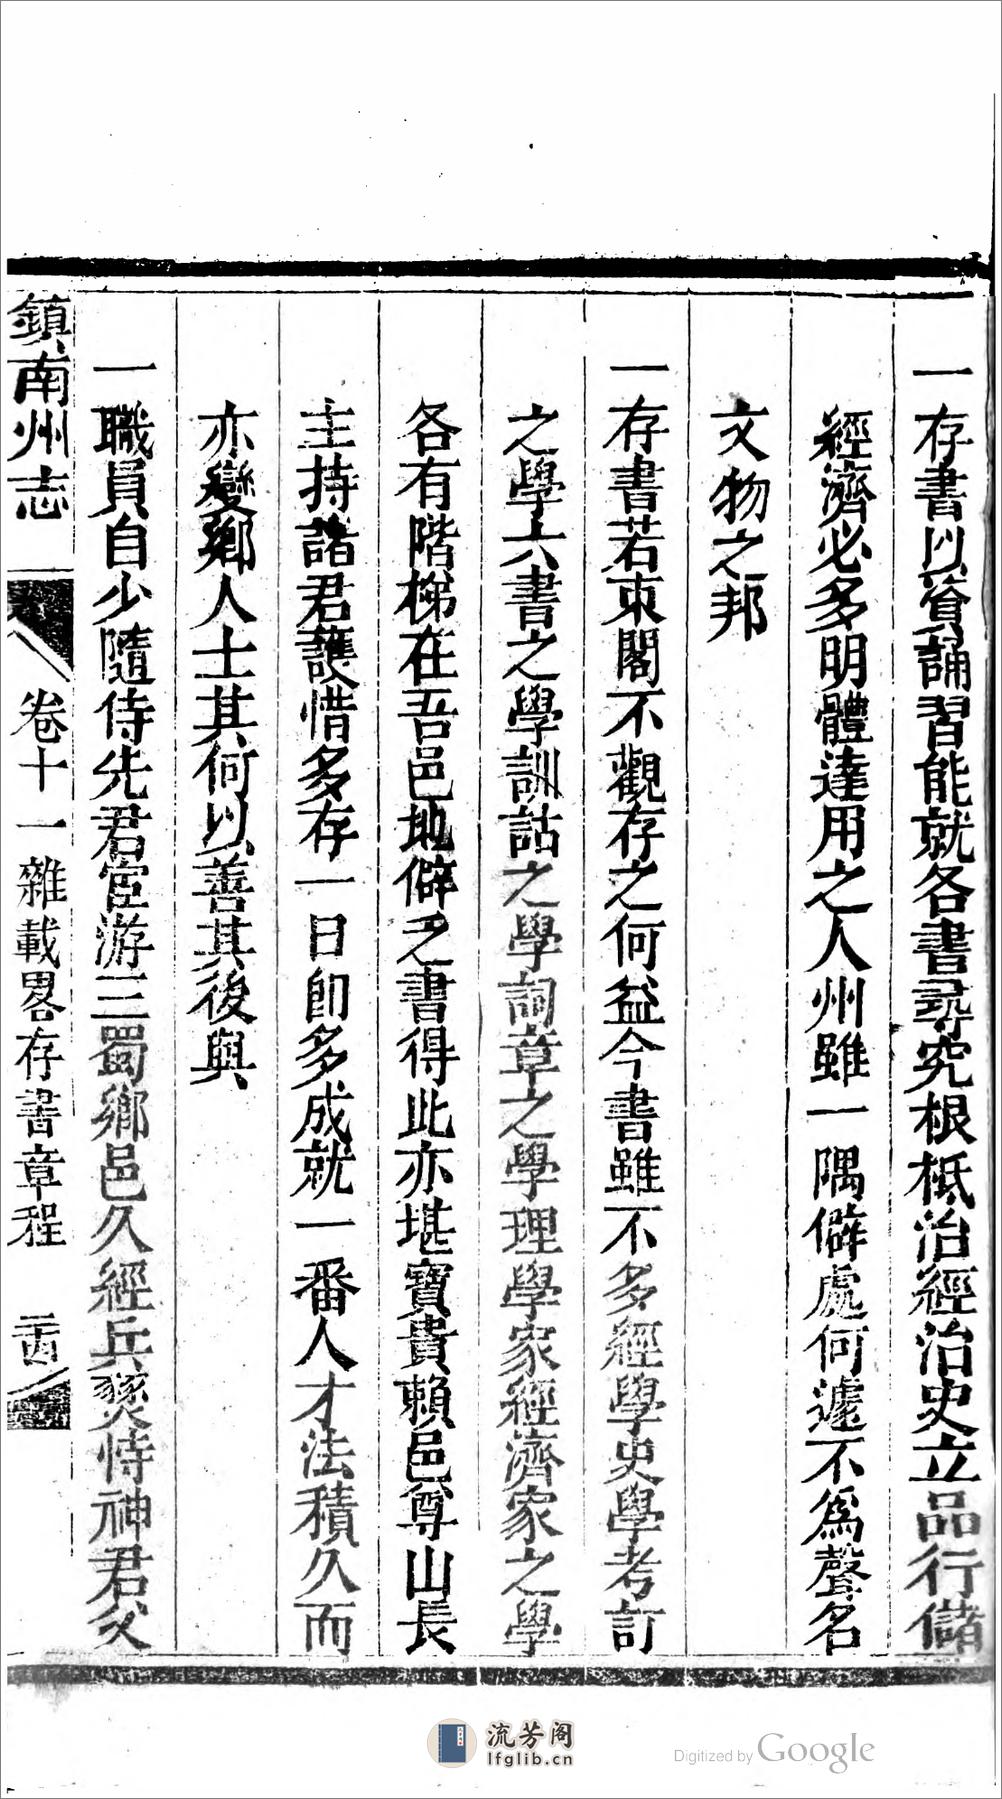 一存書以資誦習能就各書尋究根柢治經治史立品行儲
經濟必多明體達用之人州雖一隅僻處何遽不爲聲名
文物之邦
一存書若束閣不觀存之何益今書雖不多經學史學考訂
之學六書之學訓詁之學詞章之學理學家經濟家之學
各有階梯在吾邑地僻乏書得此亦堪寶貴賴邑尊山長
主持諸君護惜多存一日卽多成就一番人才法積久而
亦變鄉人士其何以善其後與
一職員自少隨侍先君宦游三蜀鄉邑久經兵燹恃神君父
鎮南州志
卷十一雜載畧存書章程
二十四
流芳阁
lfglib.cn
Digitized by Google